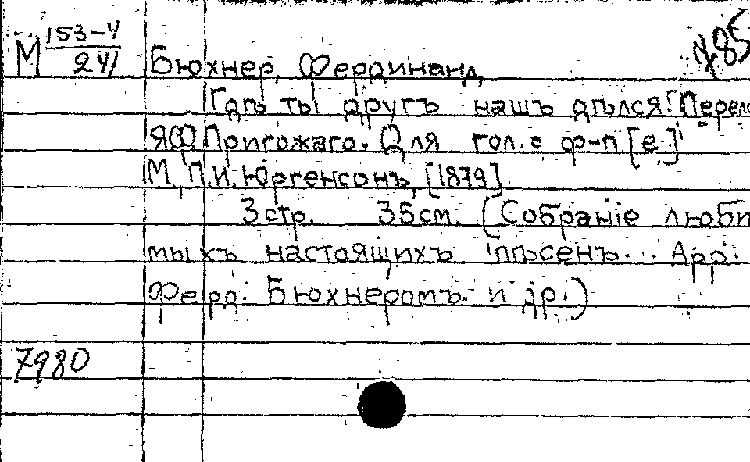 М 153-4/241
485
Бюхнер, Фердинанд
Гдѣ ты другъ нашъ дѣлся! [Перело
Я.Ф. Пригожаго. Для гол. с ф-п [e.]
М., П.И. Юргенсонъ, [1879]
3 стр. 35 см. (Собраніе люби
мыхъ настоящихъ пѣсенъ... Арр.
Ферд. Бюхнеромъ и др.)
7980